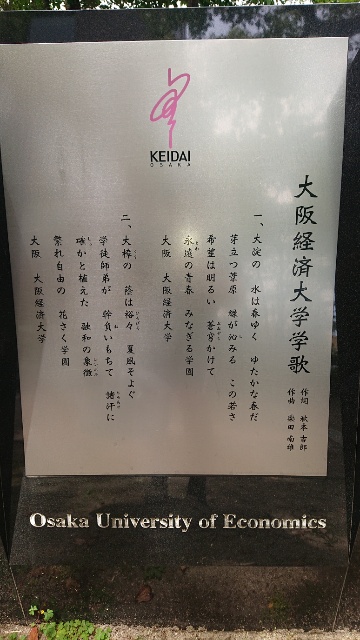 KEIDAI
OSAKA
大阪経済大学学歌
作詞 秋本 吉郎
作曲 柴田 南雄
一、大淀の 水は春ゆく ゆたかな春だ
芽立つ葦原 緑が沁みる この若さ
希望は明るい 蒼穹かけて
永遠の青春 みなぎる学園
大阪 大阪経済大学
二、大樟の 蔭は裕々 夏風そよぐ
学徒師弟が 幹負いもちて 諸汗に
確かと植えた 融和の象徴
繁れ自由の 花さく学園
大阪 大阪経済大学
Osaka University of Economics